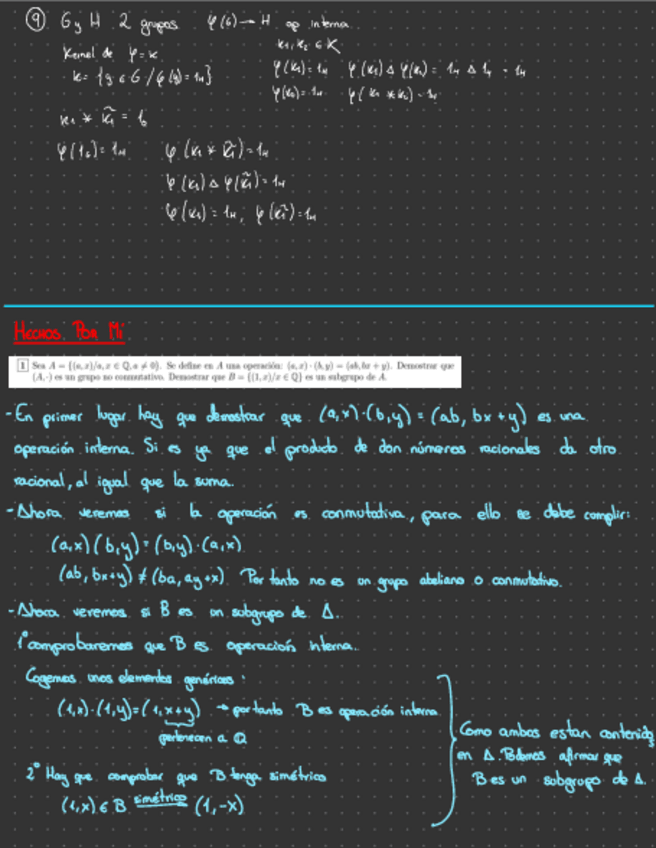 ⑨ G y H 2 grupos φ(G) → H op interna
Kernel de φ = K
K = {g ∈ G / φ(g) = 1H}
K1, K2 ∈ K
φ(K1) = 1H φ(K1) Δ φ(K2) = 1H Δ 1H = 1H
φ(K2) = 1H φ(K1 * K2) = 1H
K1 * K̃1 = 1G
φ(1G) = 1H φ(K1 * K̃1) = 1H
φ(K1) Δ φ(K̃1) = 1H
φ(K1) = 1H, φ(K̃1) = 1H
HECHOS POR MI
1 Sea A = {(a, x)/a, x ∈ ℚ, a ≠ 0}. Se define en A una operación: (a, x) · (b, y) = (ab, bx + y). Demostrar que
(A, ·) es un grupo no conmutativo. Demostrar que B = {(1, x)/x ∈ ℚ} es un subgrupo de A.
- En primer lugar hay que demostrar que (a,x)·(b,y) = (ab, bx+y) es una
operación interna. Si es ya que el producto de don números racionales da otro
racional, al igual que la suma.
- Ahora veremos si la operación es conmutativa, para ello se debe complir:
(a,x)(b,y) = (b,y)·(a,x)
(ab, bx+y) ≠ (ba, ay+x) Por tanto no es un grupo abeliano o conmutativo.
- Ahora veremos si B es un subgrupo de A.
1º comprobaremos que B es operación interna.
Cogemos unos elementos genéricos:
(1,x)·(1,y) = (1, x+y) → por tanto B es operación interna
pertenecen a Q
2º Hay que comprobar que B tenga simétrico
(1,x) ∈ B simétrico (1,-x)
Como ambos estan contenidos
en A. Podemos afirmar que
B es un subgrupo de A.